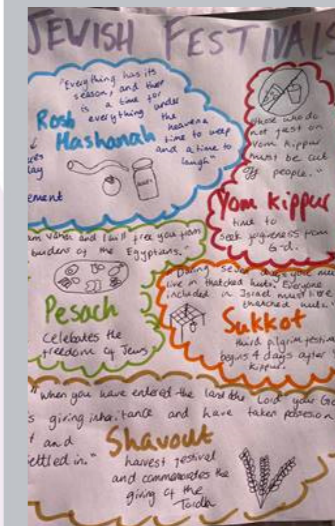 JEWISH FESTIVALS
"Everything has its
season, and there
is a time for
everything under
the
heavens
time to weep
and a time to
laugh"
Rosh
Hashanah
ement
those who do
not fast on
Yom Kippur
must be cut
off people."
Yom Kippur
time to
seek forgiveness from
G-d.
and I will free you from
burdens of the Egyptians."
Pesach
celebrates the
freedom of Jews
During seven days you mus
live in thatched huts. Everyone
included in Israel must live
thatched huts."
Sukkot
third pilgrim festival
begins 4 days after
Kippur.
"When you have entered the land the Lord your Go
s giving inheritance and have taken
t and
ettled in."
Shavout
harvest festival
and commemorates the
giving of the
Torah